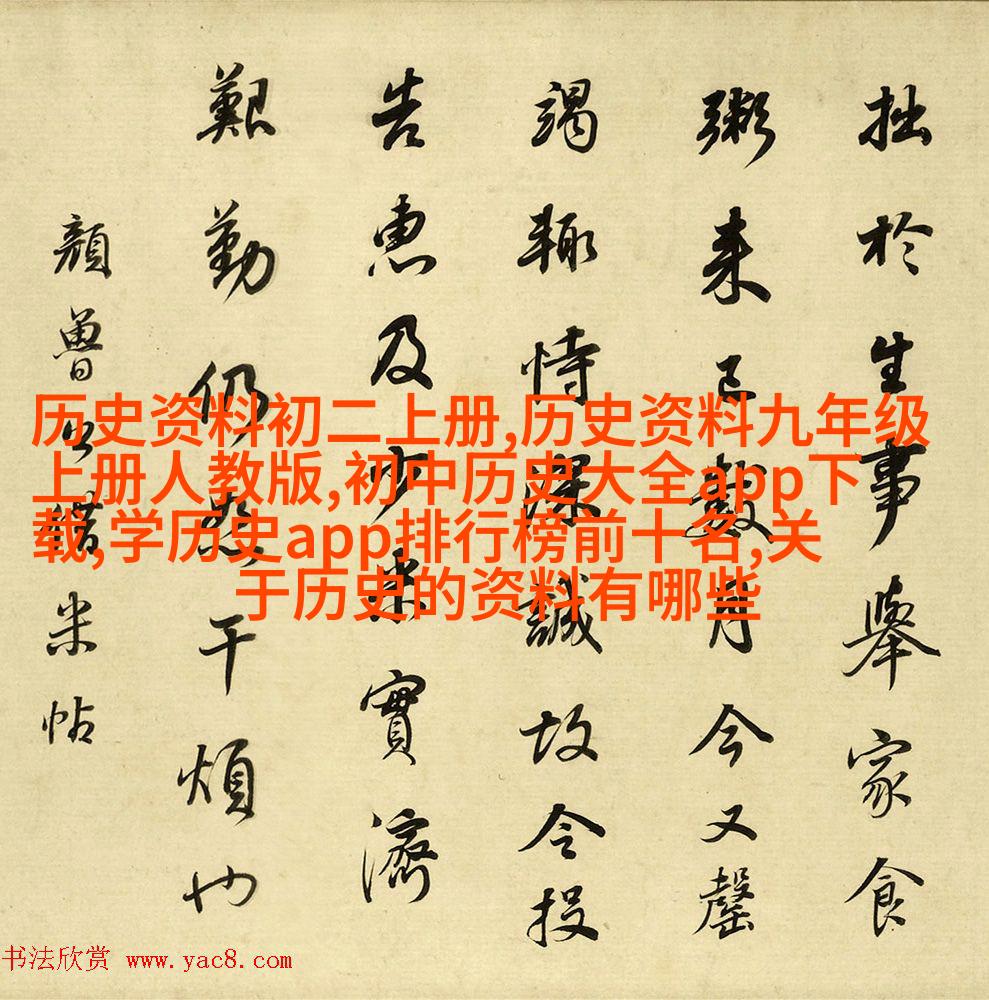 拙於生事舉家食
粥来已數月今又罄
竭輙恃深誠故令投
告惠及少米實濟
艱勤仍恕干煩也
顏魯公借米帖
历史资料初二上册,历史资料九年级
上册人教版,初中历史大全app下
载,学历史app排行榜前十名,关
于历史的资料有哪些
书法欣赏 www.yac8.com